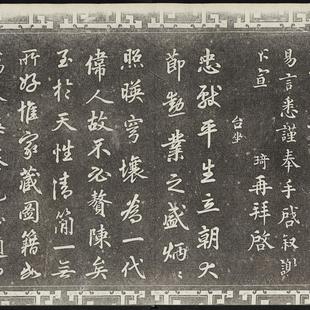 易言悉謹奉手啓叙謝
不宣 琦再拜啓
台坐
忠獻平生立朝大
節勳業之盛炳〻
照暎穹壤為一代
偉人故不必贅陳矣
至於天性清簡一無
所好惟家藏圖籍